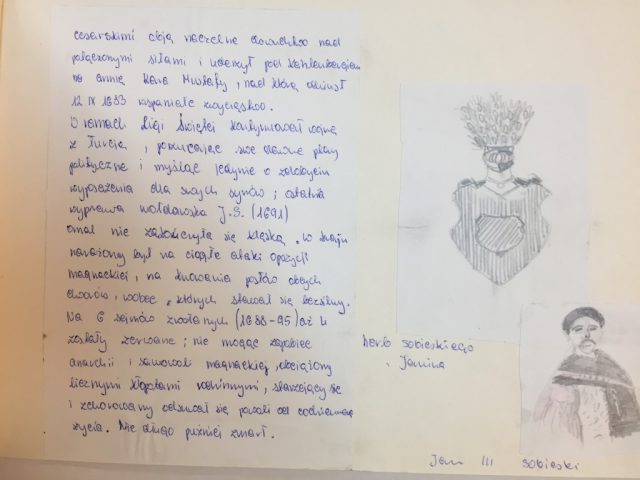 cesarskimi objął naczelne dowództwo nad
połączonymi siłami i uderzył pod Kahlenbergiem
na armię Kara Mustafy, nad którą odniósł
12 IX 1683 wspaniałe zwycięstwo.
W ramach Ligi Świętej kontynuował wojnę
z Turcją, porzucając swe dawne plany
polityczne i myśląc jedynie o zdobyciu
wyposażenia dla swych synów; ostatnia
wyprawa mołdawska J.S. (1691)
omal nie zakończyła się klęską. W kraju
narażony był na ciągłe ataki opozycji
magnackiej, na knowania posłów obcych
dworów, wobec których stawał się bezsilny.
Na 6 sejmów zwołanych (1688-95) aż 4
zostały zerwane; nie mogąc zapobiec
anarchii i samowoli magnackiej, obciążony
licznymi kłopotami rodzinnymi, starzejący się
i schorowany odsuwał się powoli od codziennego
życia. Nie długo puźniej zmarł.
herb Sobieskiego
Janina
Jan III Sobieski